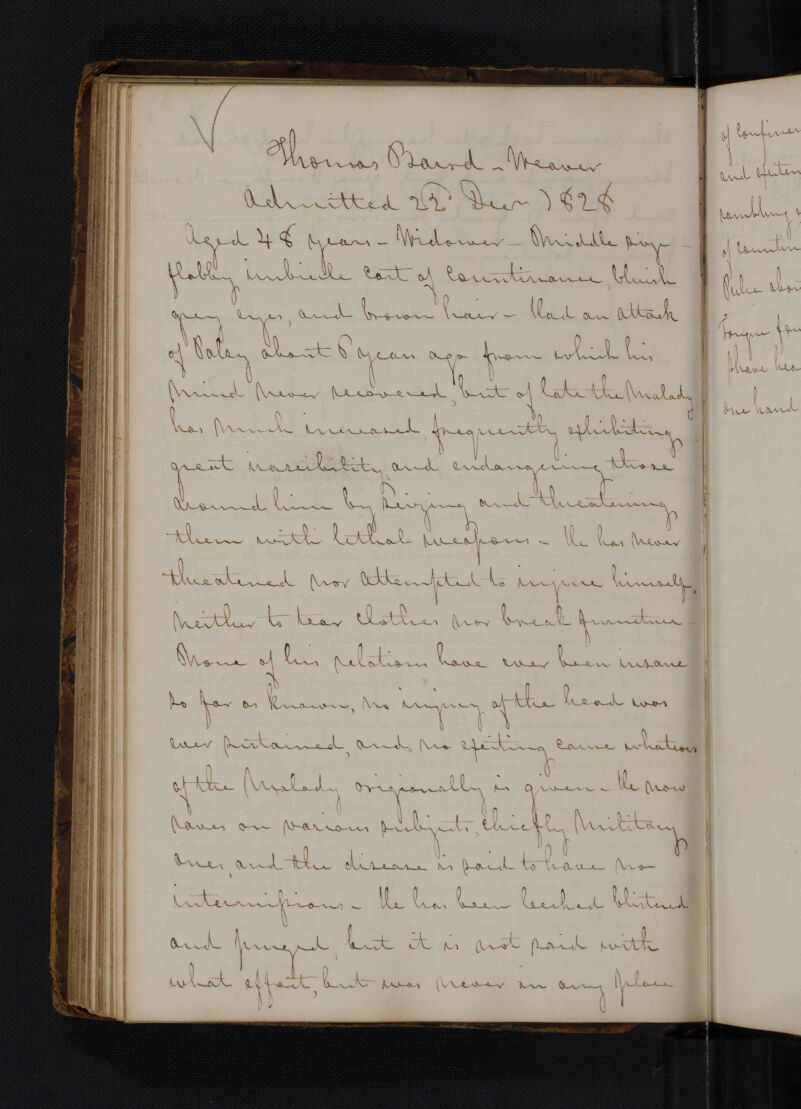 Thomas Baird - Weaver
Admitted 22d Decr 1828
Aged 48 years - Widower - Middle size -
flabby imbicile cast of countinance, bluish
grey eyes, and brown hair - Had an attack
of Palsy about 6 years ago from which his
mind never recovered, but of late the Malady
has much increased, frequently exhibiting
great irascibility and endangering those
around him by seizing and threatening
them with lethal weapons - He has never
threatened nor attempted to injure himself,
neither to tear clothes nor break furniture -
None of his relations have ever been insane
so far as known, no injury of the head was
ever sustained, and no exciting cause whatever
of the Malady origionally is given - He now
raves on various subjects, chiefly Military
ones, and the disease is said to have no
intermissions - He has been leeched blistered
and purged, but it is not said with
what effect, but was never in any place
of confinem
and
rambling
of countin
Pulse abou
Tongue
have
one hand